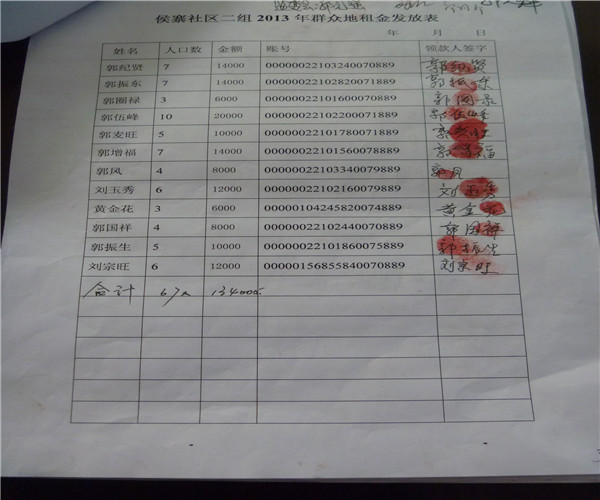 侯寨社区二组 2013 年群众地租金发放表
年 月 日
姓名 人口数 金额 账号 领款人签字
郭纪贤 7 14000 00000022103240070889 郭纪贤
郭振东 7 14000 00000022102820071889 郭振东
郭圈禄 3 6000 00000022101600070889 郭圈录
郭伍峰 10 20000 00000022102200071889 郭伍峰
郭麦旺 5 10000 00000022101780071889 郭麦旺
郭增福 7 14000 00000022101560078889 郭增福
郭风 4 8000 00000022103340079889 郭风
刘玉秀 6 12000 00000022102160079889 刘玉秀
黄金花 3 6000 00000104245820074889 黄金花
郭国祥 4 8000 00000022102440070889 郭国祥
郭振生 5 10000 00000022101860075889 郭振生
刘宗旺 6 12000 00000156855840070889 刘宗旺
合计 67人 134000